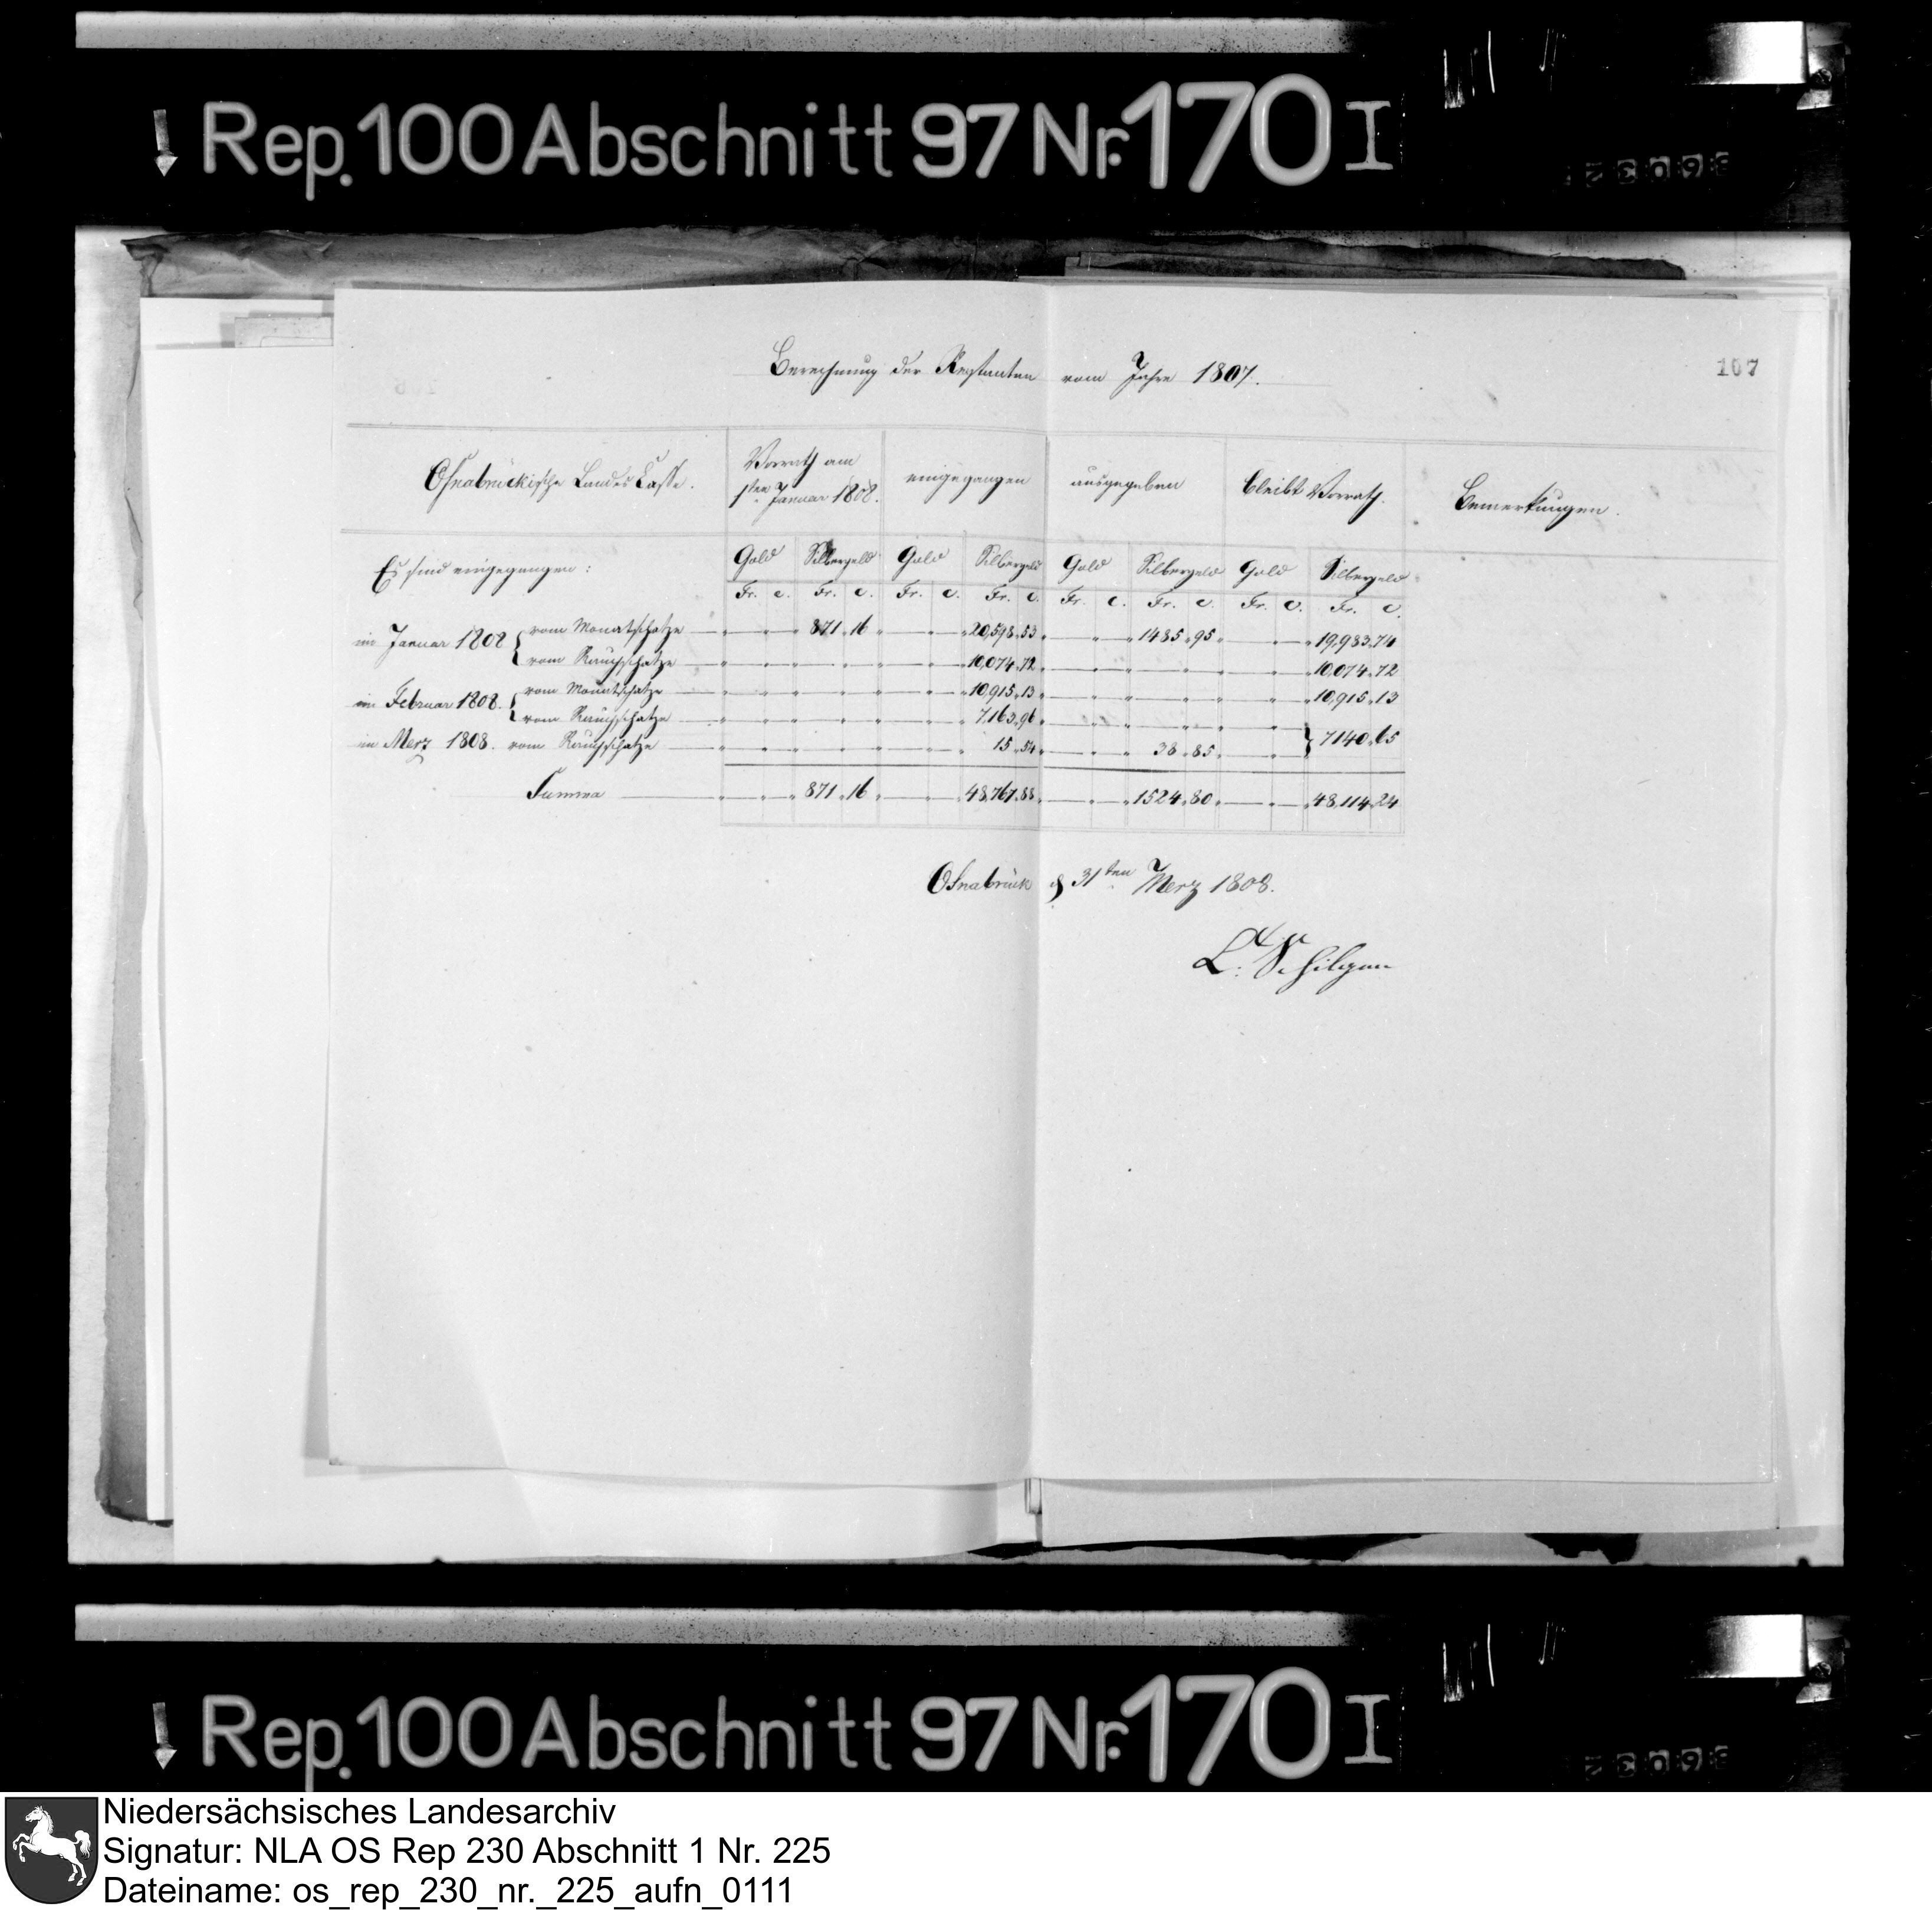 Rep. 100 Abschnitt 97 Nr. 170 I
107
Berechnung der Restanten vom Jahre 1807.
Osnabrückische Landes Casse. Vorrath am 1ten Januar 1808. eingegangen ausgegeben bleibt Vorrath. Bemerkungen.
Es sind eingegangen: Gold Silbergeld Gold Silbergeld Gold Silbergeld Gold Silbergeld
Fr. c. Fr. c. Fr. c. Fr. c. Fr. c. Fr. c. Fr. c. Fr. c.
im Januar 1808 { vom Monatschatze 871 16 20,598 53 1485 95 19,983 74
vom Rauchschatze 10,074 72 10,074 72
im Februar 1808. { vom Monatschatze 10,915 13 10,915 13
vom Rauchschatze 7,163 96
im Merz 1808. vom Rauchschatze 15 54 38 85 } 7140 65
Summa 871 16 48,767 88 1524 80 48,114 24
Osnabrück d 31ten Merz 1808.
Schilgen
Rep. 100 Abschnitt 97 Nr. 170 I
Niedersächsisches Landesarchiv
Signatur: NLA OS Rep 230 Abschnitt 1 Nr. 225
Dateiname: os_rep_230_nr._225_aufn_0111